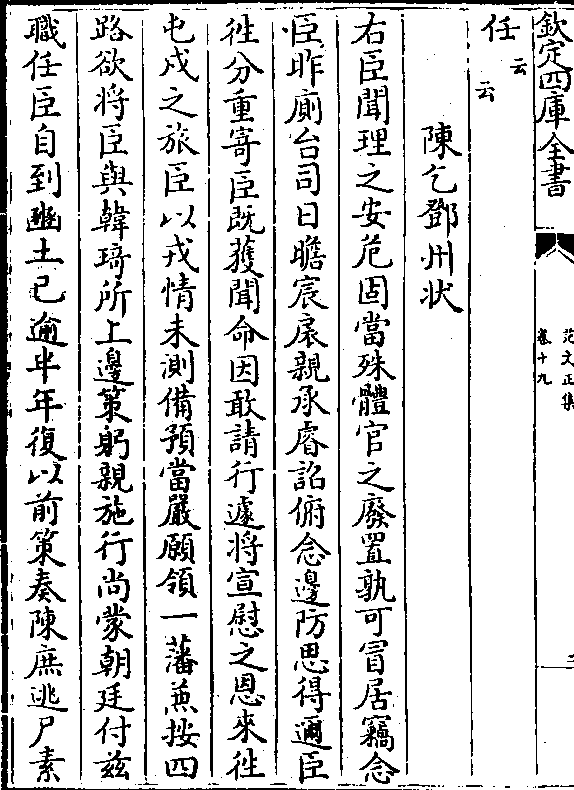 欽定四庫全書
范文正集
卷十九
任云云
陳乞鄧州状
右臣聞理之安危固當殊體官之廢置孰可冒居竊念
臣昨廁台司日瞻宸扆親承睿詔俯念邊防思得邇臣
徃分重寄臣既獲聞命因敢請行遽將宣慰之恩來徃
屯戍之旅臣以戎情未測備預當嚴願領一藩兼按四
路欲将臣與韓琦所上邊策躬親施行尚蒙朝廷付兹
職任臣自到豳土已逾半年復以前策奏陳庶逃尸素